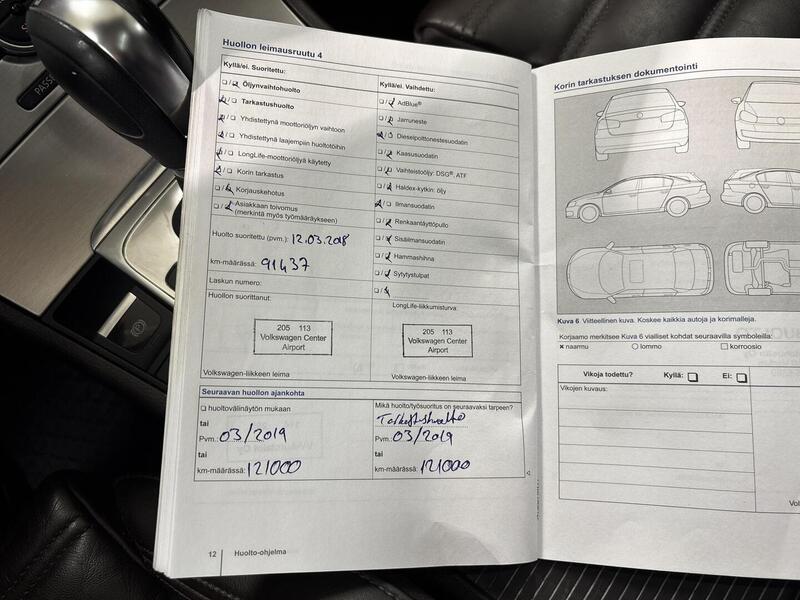 PASS
Huollon leimausruutu 4
Kyllä/ei. Suoritettu:
Öljynvaihtohuolto
Tarkastushuolto
Yhdistettynä moottoriöljyn vaihtoon
Yhdistettynä laajempiin huoltotöihin
LongLife-moottoriöljyä käytetty
Korin tarkastus
Korjauskehotus
Asiakkaan toivomus
(merkintä myös työmääräykseen)
Huolto suoritettu (pvm.): 12.03.2018
km-määrässä: 91437
Laskun numero:
Huollon suorittanut:
205 113
Volkswagen Center
Airport
Volkswagen-liikkeen leima
Kyllä/ei. Vaihdettu:
AdBlue®
Jarruneste
Dieselpolttonestesuodatin
Kaasusuodatin
Vaihteistoöljy: DSG®, ATF
Haldex-kytkin: öljy
Ilmansuodatin
Renkaantäyttöpullo
Sisäilmansuodatin
Hammashihna
Sytytystulpat
LongLife-liikkumisturva:
205 113
Volkswagen Center
Airport
Volkswagen-liikkeen leima
Seuraavan huollon ajankohta
huoltovälinäytön mukaan
tai
Pvm.: 03/2019
tai
km-määrässä: 121000
Mikä huolto/työsuoritus on seuraavaksi tarpeen?
Tarkastushuolto
Pvm.: 03/2019
tai
km-määrässä: 121000
12 Huolto-ohjelma
Korin tarkastuksen dokumentointi
Kuva 6 Viitteellinen kuva. Koskee kaikkia autoja ja korimalleja.
Korjaamo merkitsee Kuva 6 vialliset kohdat seuraavilla symboleilla:
× naarmu ○ lommo □ korroosio
Vikoja todettu? Kyllä: Ei:
Vikojen kuvaus: